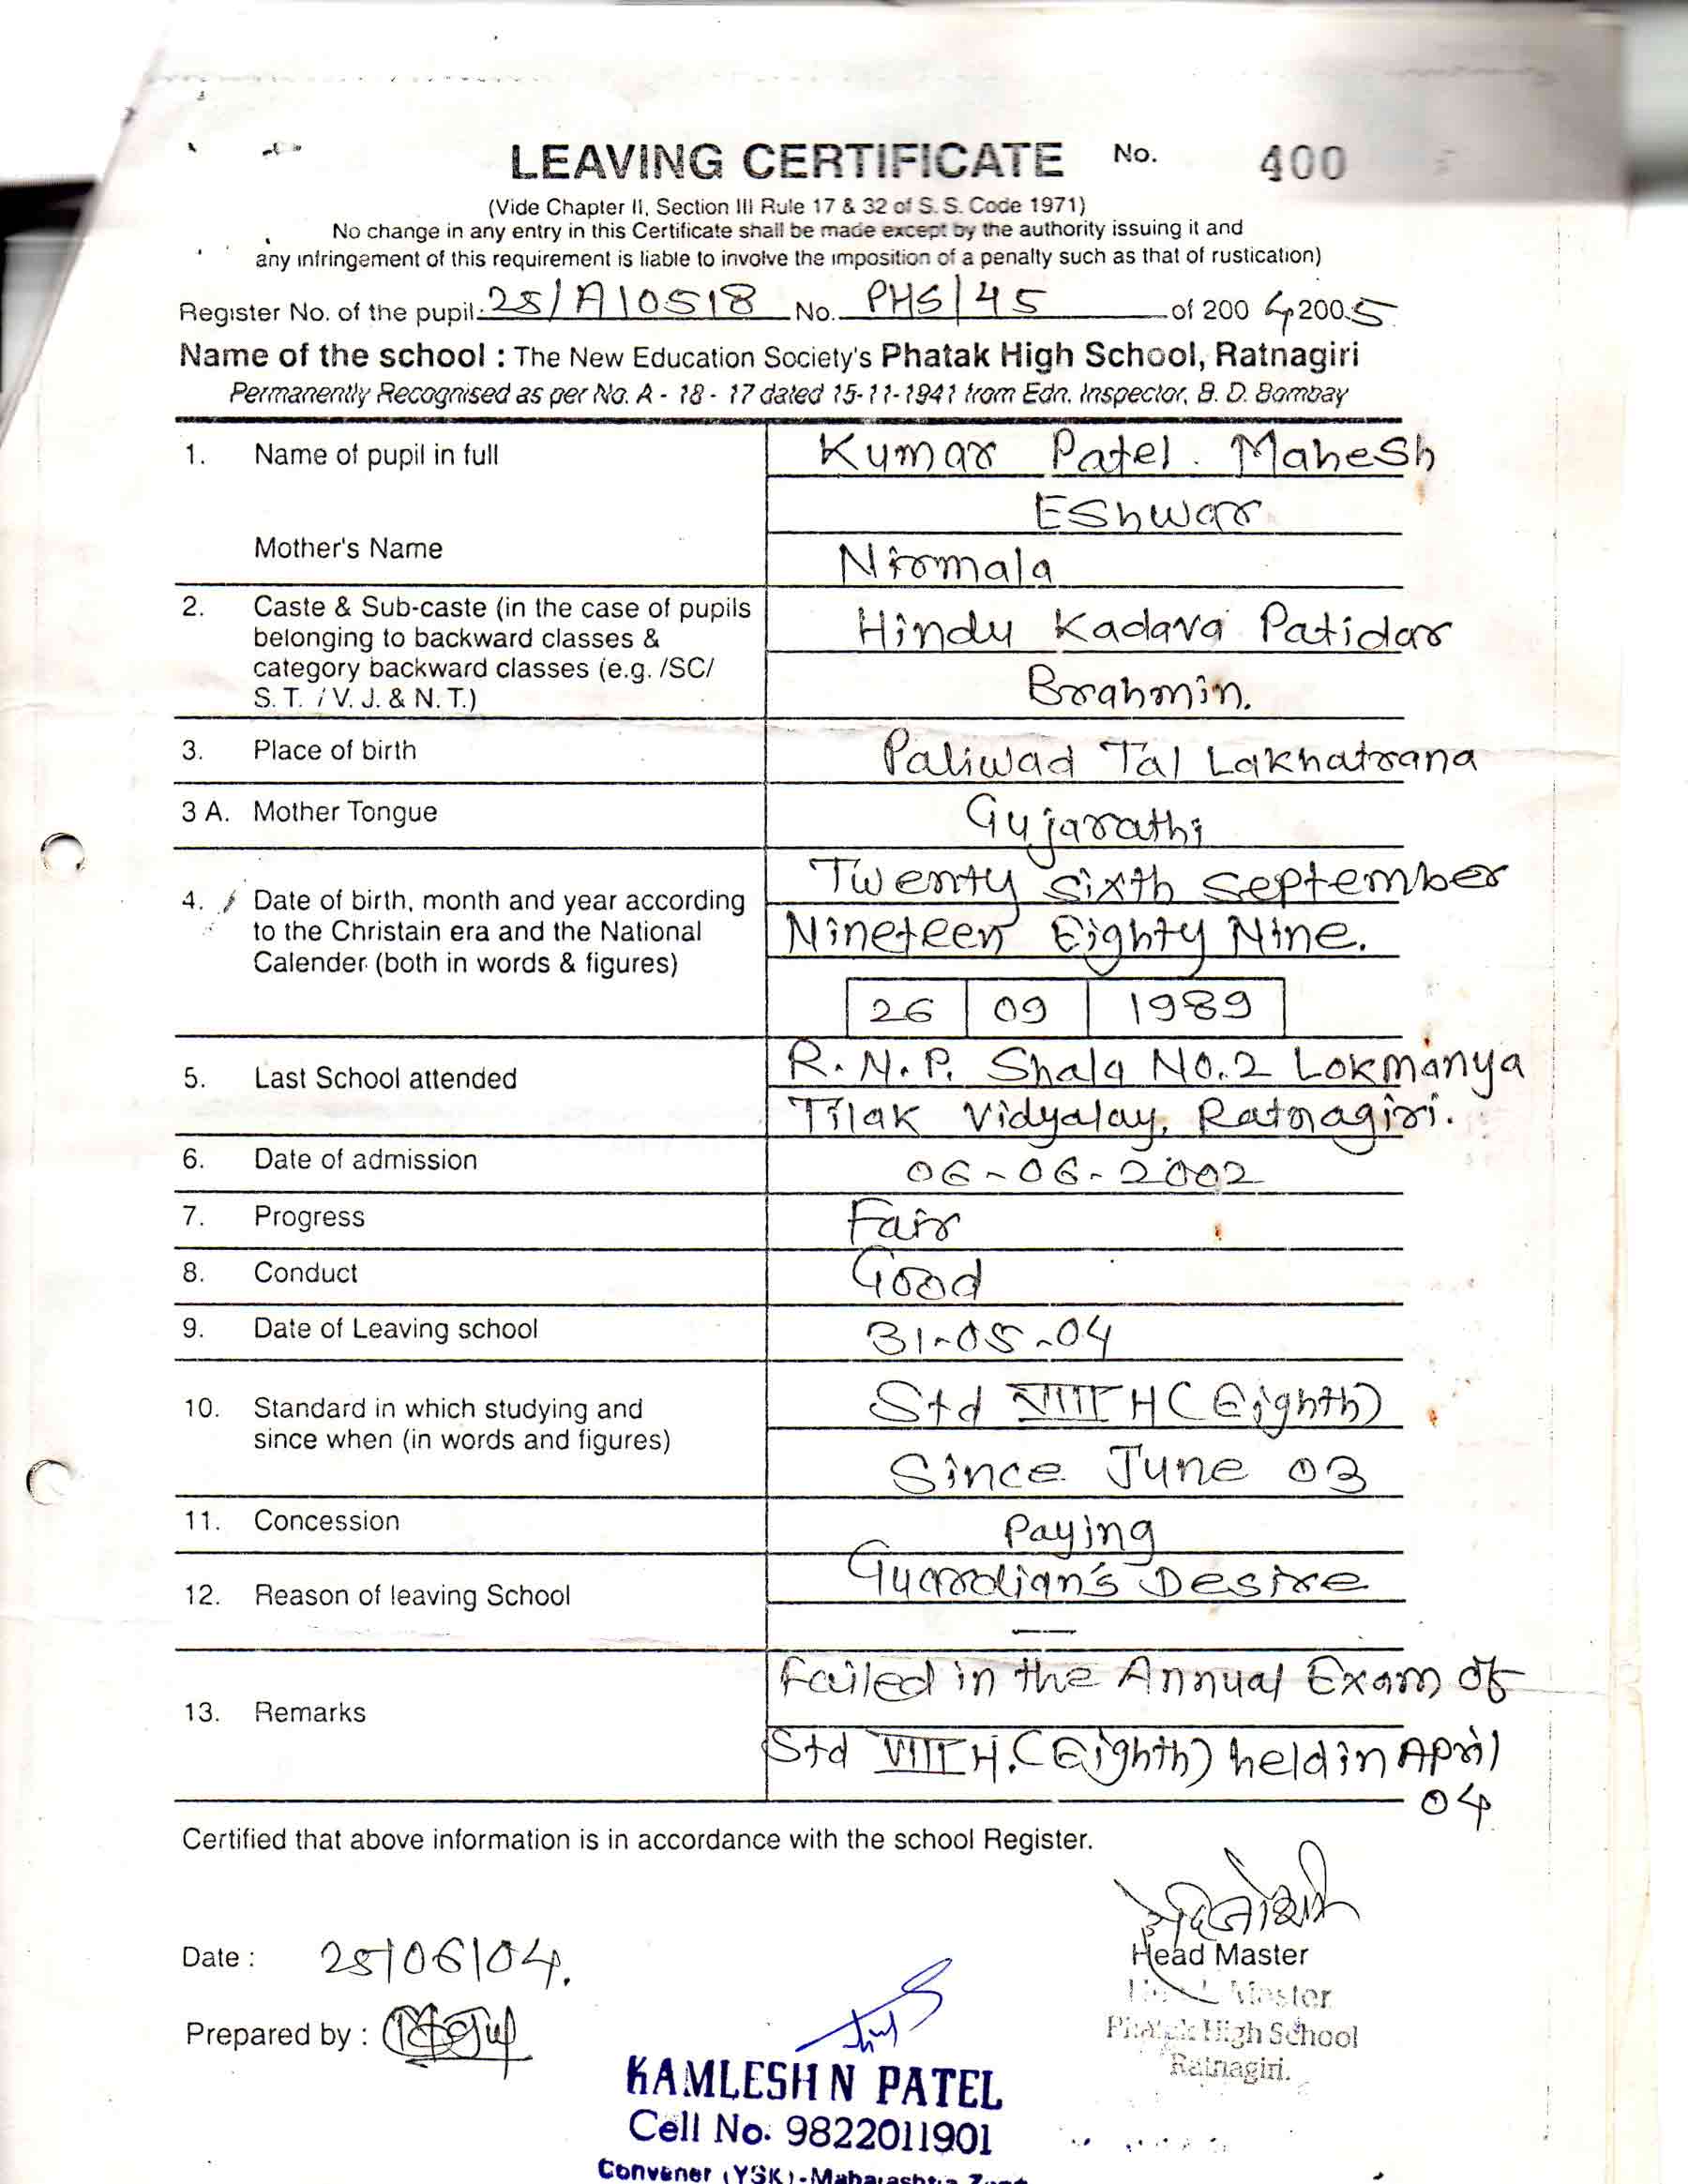 LEAVING CERTIFICATE No. 400
(Vide Chapter II, Section III Rule 17 & 32 of S. S. Code 1971)
No change in any entry in this Certificate shall be made except by the authority issuing it and
any infringement of this requirement is liable to involve the imposition of a penalty such as that of rustication)
Register No. of the pupil 25/A10518 No. PHS/45 of 200 4 200 5
Name of the school : The New Education Society's Phatak High School, Ratnagiri
Permanently Recognised as per No. A - 18 - 17 dated 15-11-1941 from Edn. Inspector, B. D. Bombay
1. Name of pupil in full Kumar Patel. Mahesh
Eshwar
Mother's Name Nirmala
2. Caste & Sub-caste (in the case of pupils
belonging to backward classes &
category backward classes (e.g. /SC/
S. T. / V. J. & N. T.)
Hindu Kadava Patidar
Brahmin.
3. Place of birth Paliwad Tal Lakhatrana
3 A. Mother Tongue Gujarathi
4. Date of birth, month and year according
to the Christain era and the National
Calender (both in words & figures)
Twenty sixth september
Nineteen Eighty Nine.
26 09 1989
5. Last School attended R. N. P. Shala No. 2 Lokmanya
Tilak Vidyalay, Ratnagiri.
6. Date of admission 06-06-2002
7. Progress Fair
8. Conduct Good
9. Date of Leaving school 31-05-04
10. Standard in which studying and
since when (in words and figures)
Std VIII H (Eighth)
Since June 03
11. Concession Paying
12. Reason of leaving School Guardian's Desire
—
13. Remarks Failed in the Annual Exam of
Std VIII H. (Eighth) held in April
04
Certified that above information is in accordance with the school Register.
Date : 25/06/04.
Head Master
Head Master
Phatak High School
Ratnagiri.
Prepared by :
KAMLESH N PATEL
Cell No. 9822011901
Convener (YSK)-Maharashtra Zone